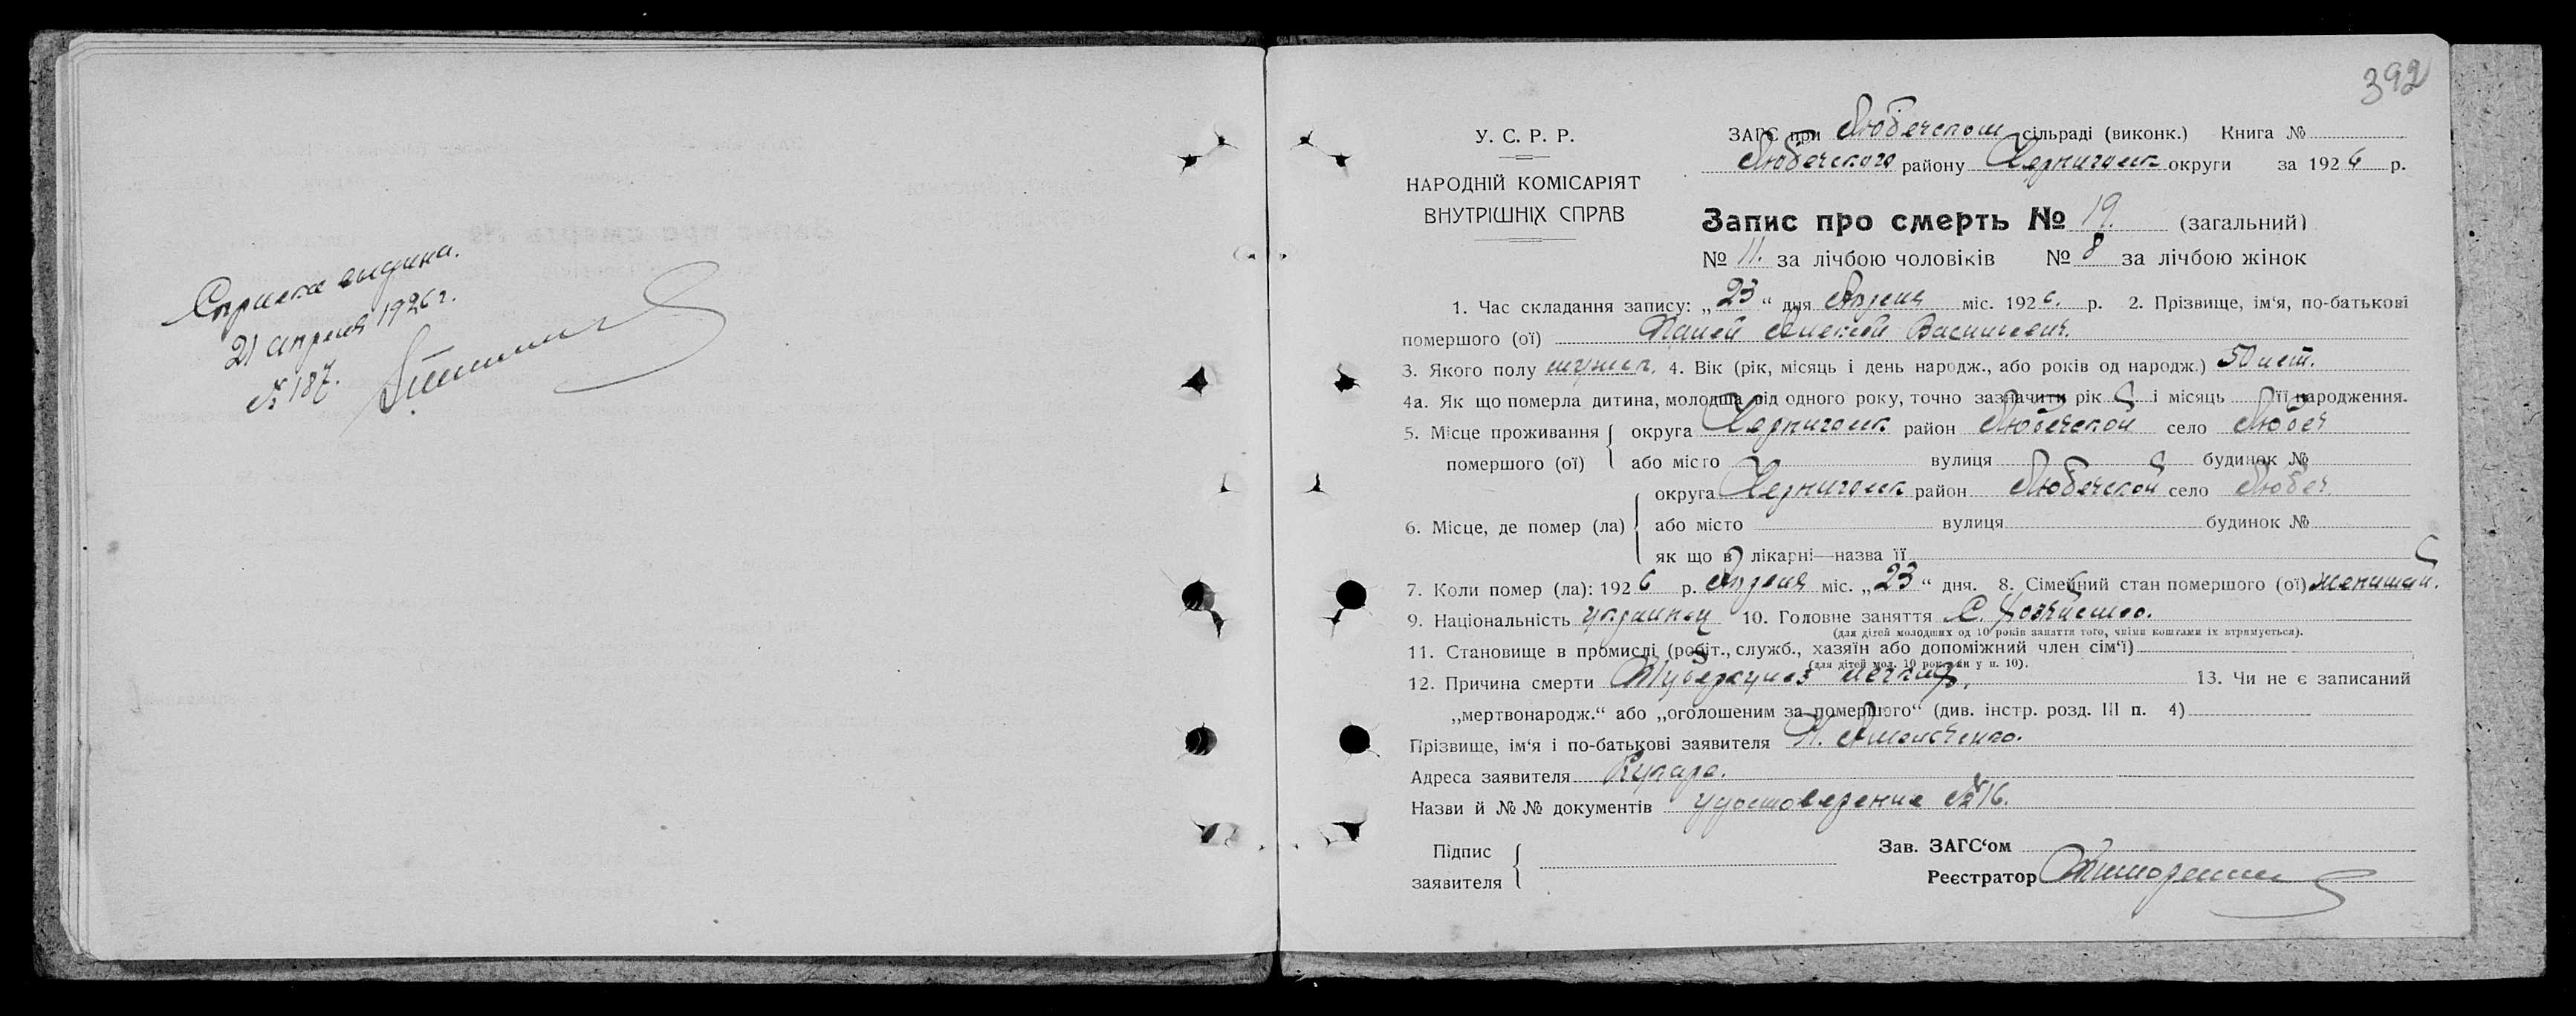 Справка выдана.
21 апреля 1926 г.
№ 187.
392
У. С. Р. Р.
НАРОДНІЙ КОМІСАРІЯТ
ВНУТРІШНІХ СПРАВ
ЗАГС при Любечском сільраді (виконк.) Книга №
Любечского району Черниговск округи за 1926 р.
Запис про смерть № 19. (загальний)
№ 11. за лічбою чоловіків № 8 за лічбою жінок
1. Час складання запису: „23“ дня Апреля міс. 1926. р. 2. Прізвище, ім‘я, по-батькові
помершого (ої) Алексей Васильевич.
3. Якого полу мужск. 4. Вік (рік, місяць і день народж., або років од народж.) 50 лет.
4а. Як що померла дитина, молодша від одного року, точно зазначити рік і місяць її народження.
5. Місце проживання округа Черниговск район Любечской село Любеч
помершого (ої) або місто вулиця будинок №
округа Черниговск район Любечской село Любеч.
6. Місце, де помер (ла) або місто вулиця будинок №
як що в лікарні—назва її
7. Коли помер (ла): 1926 р. Апреля міс. „23“ дня. 8. Сімейний стан помершого (ої) женатый.
9. Національність украинец 10. Головне заняття С. Хозяйство.
(для дітей молодших од 10 років заняття того, чиїми коштами їх втримується).
11. Становище в промислі (робіт., служб., хазяїн або допоміжний член сім‘ї)
(для дітей мол. 10 рок. як у п. 10).
12. Причина смерти Туберкулез легких. 13. Чи не є записаний
„мертвонародж.“ або „оголошеним за помершого“ (див. інстр. розд. III п. 4)
Прізвище, ім‘я і по-батькові заявителя Н.
Адреса заявителя
Назви й №№ документів удостоверение № 16.
Підпис
заявителя
Зав. ЗАГС‘ом
Реєстратор